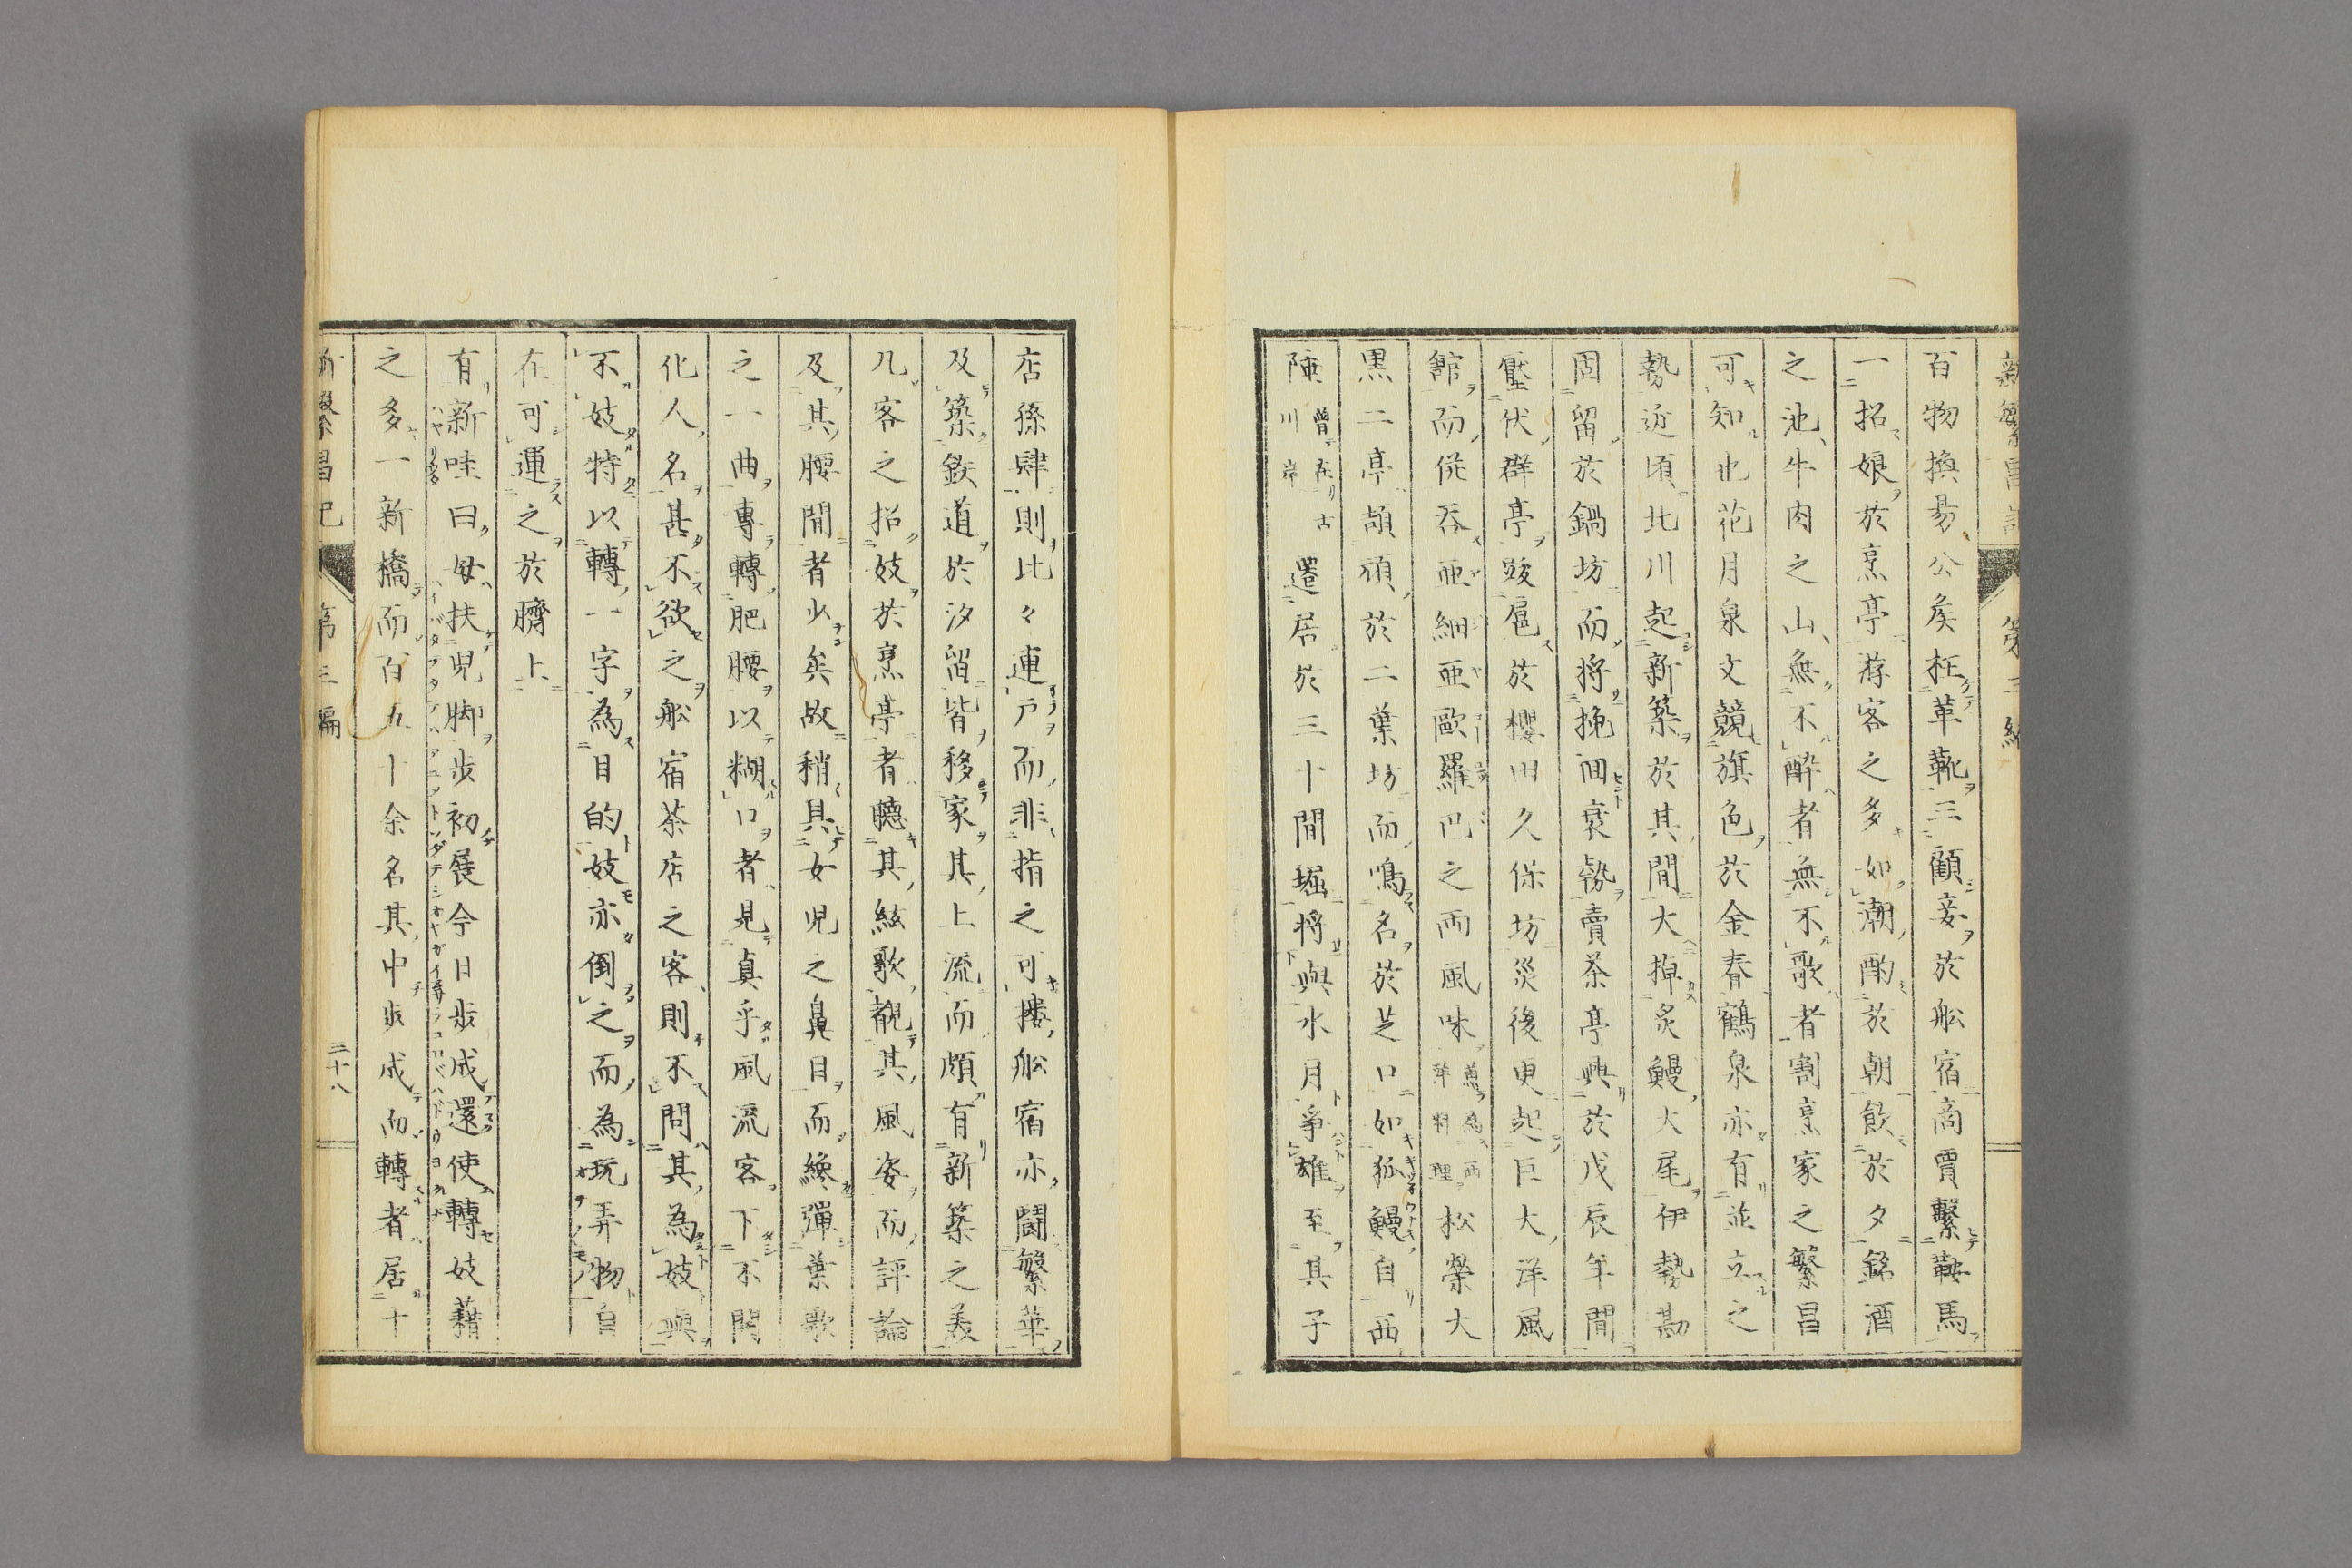 百物換易公矦枉革靴三顧妾於舩宿商賈繫鞍馬
一招娘於烹亭游客之多如潮酌於朝飲於夕銘酒
之池牛肉之山無不酔者無不歌者割烹家之繁昌
可知也花月泉文競旗色於金春鶴泉亦有並立之
勢近頃北川起新築於其間大掉炙鰻大尾伊勢勘
固留於鍋坊而将挽回衰勢賣茶亭興於戊辰年間
壓伏群亭跋扈於櫻田久保坊災後更起巨大洋風
館而併吞亜細亜歐羅巴之両風味 兼為西洋料理 松榮大
黒二亭頡頏於二葉坊而鳴名於芝口如狐鰻自西
陲 曽在古川岸 遷居於三十間堀将與水月爭雄至其子
店孫肆則比々連戸而非指之可摟舩宿亦闘繁華
及築鉄道於汐留皆移家其上流而頗有新築之美
凡客之招妓於烹亭者聴其絃歌觀其風姿而評論
及其腰間者少矣故稍具女児之鼻目而纔彈葉歌
之一曲專轉肥腰以糊口者見真乎風流客下不問
化人名甚不欲之舩宿茶店之客則不問其為妓與
不妓特以轉一字為目的妓亦倒之而為玩弄物自
在可運之於臍上
有新哇曰母扶児脚歩初展今日歩成還使轉妓藉
之多一新橋而百五十余名其中歩成而轉者居十
新繁昌記 第三編 三十八